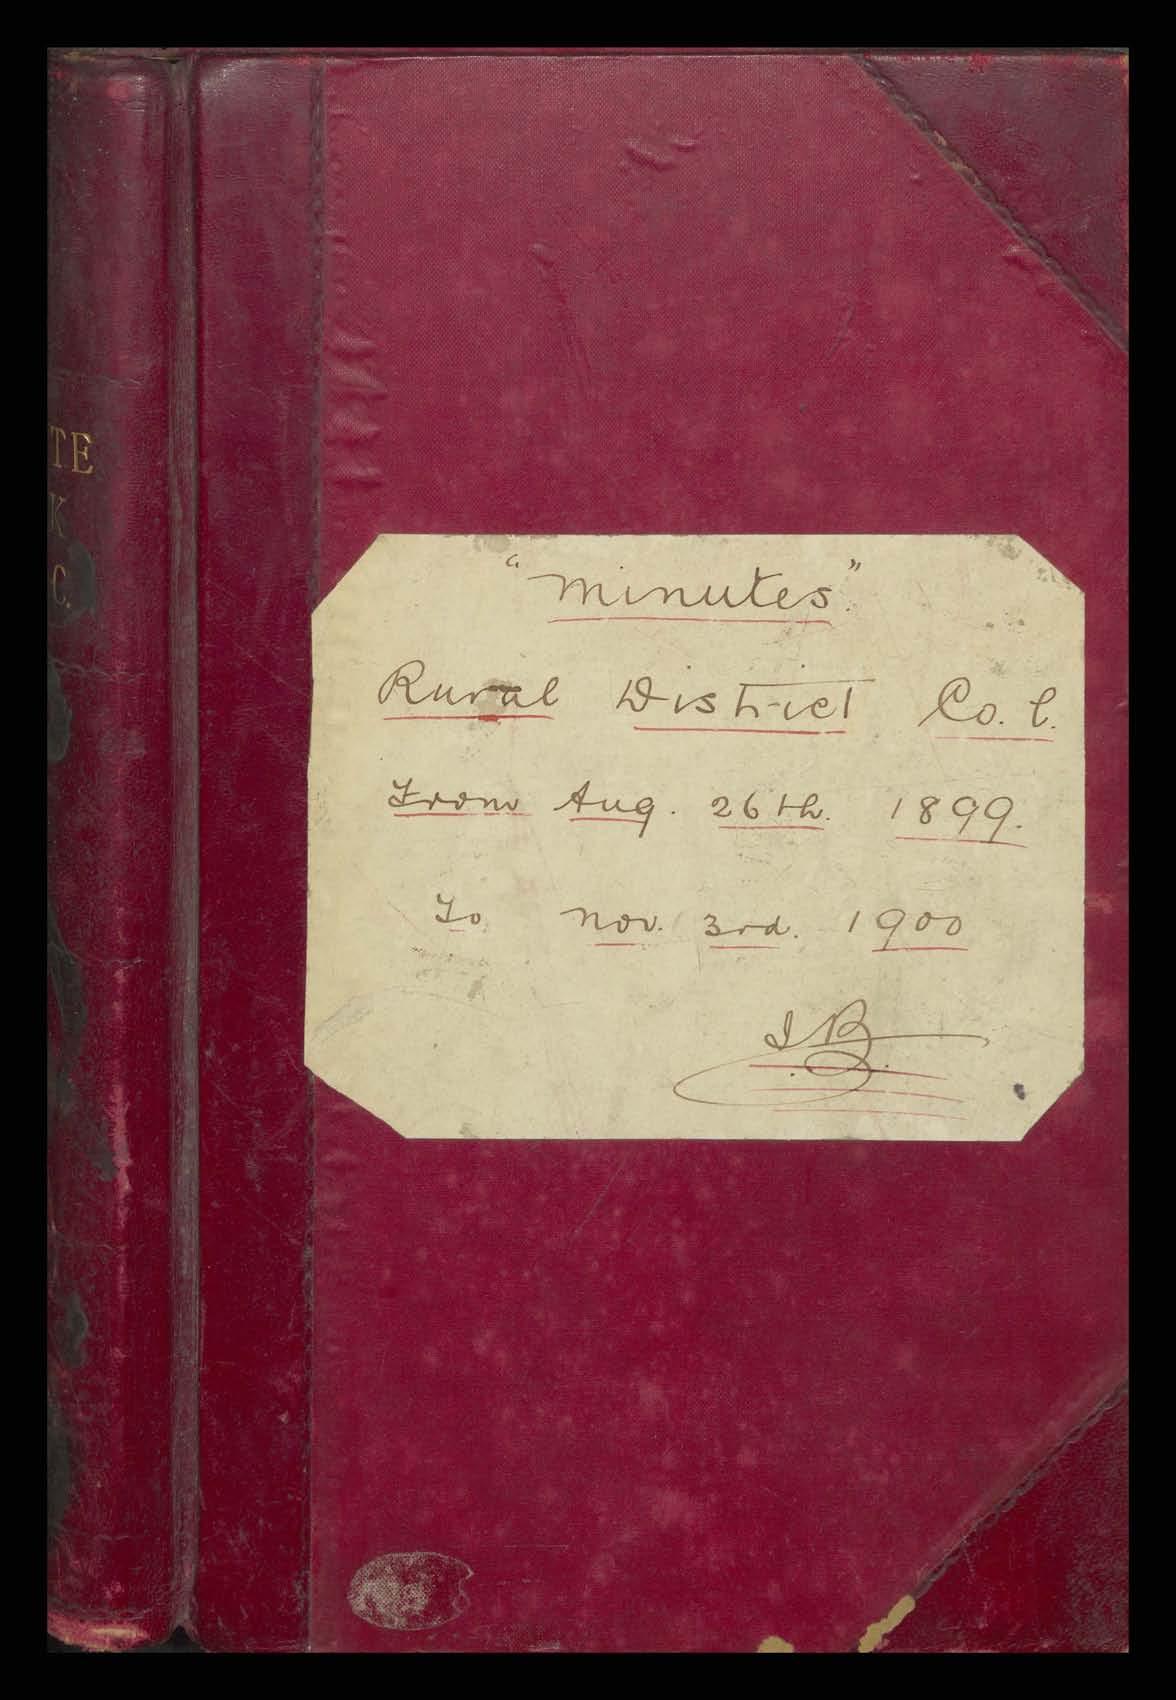 TE
K
C.
"Minutes".
Rural District Co. C.
From Aug. 26th. 1899.
To Nov. 3rd. 1900